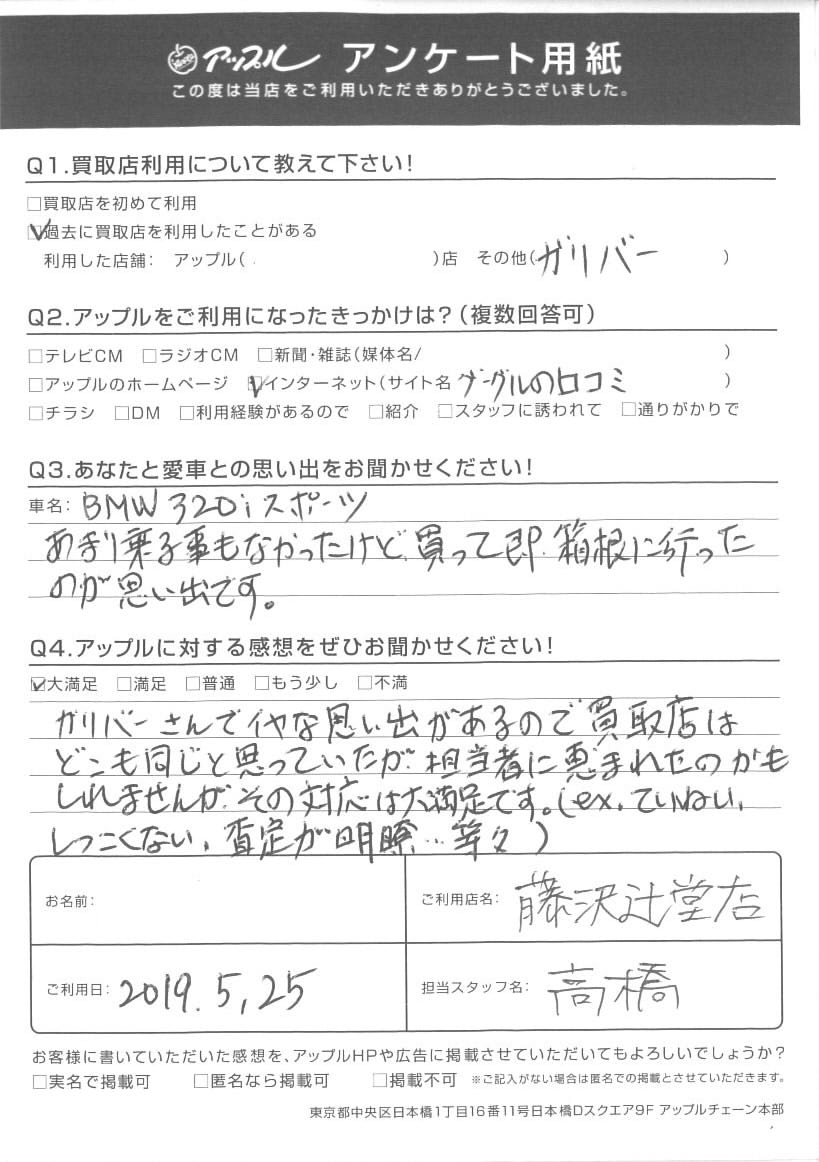 アップル アンケート用紙
この度は当店をご利用いただきありがとうございました。
Q1.買取店利用について教えて下さい!
□買取店を初めて利用
☑過去に買取店を利用したことがある
利用した店舗: アップル( )店 その他(ガリバー )
Q2.アップルをご利用になったきっかけは?(複数回答可)
□テレビCM □ラジオCM □新聞・雑誌(媒体名/ )
□アップルのホームページ ☑インターネット(サイト名 グーグルの口コミ )
□チラシ □DM □利用経験があるので □紹介 □スタッフに誘われて □通りがかりで
Q3.あなたと愛車との思い出をお聞かせください!
車名: BMW 320i スポーツ
あまり乗る事もなかったけど、買って即、箱根に行った
のが思い出です。
Q4.アップルに対する感想をぜひお聞かせください!
☑大満足 □満足 □普通 □もう少し □不満
ガリバーさんでイヤな思い出があるので買取店は
どこも同じと思っていたが、担当者に恵まれたのかも
しれませんが、その対応は大満足です。(ex.ていねい、
しつこくない、査定が明瞭…等々)
お名前:
ご利用店名: 藤沢辻堂店
ご利用日: 2019.5,25
担当スタッフ名: 高橋
お客様に書いていただいた感想を、アップルHPや広告に掲載させていただいてもよろしいでしょうか?
□実名で掲載可 □匿名なら掲載可 □掲載不可 ※ご記入がない場合は匿名での掲載とさせていただきます。
東京都中央区日本橋1丁目16番11号日本橋Dスクエア9F アップルチェーン本部